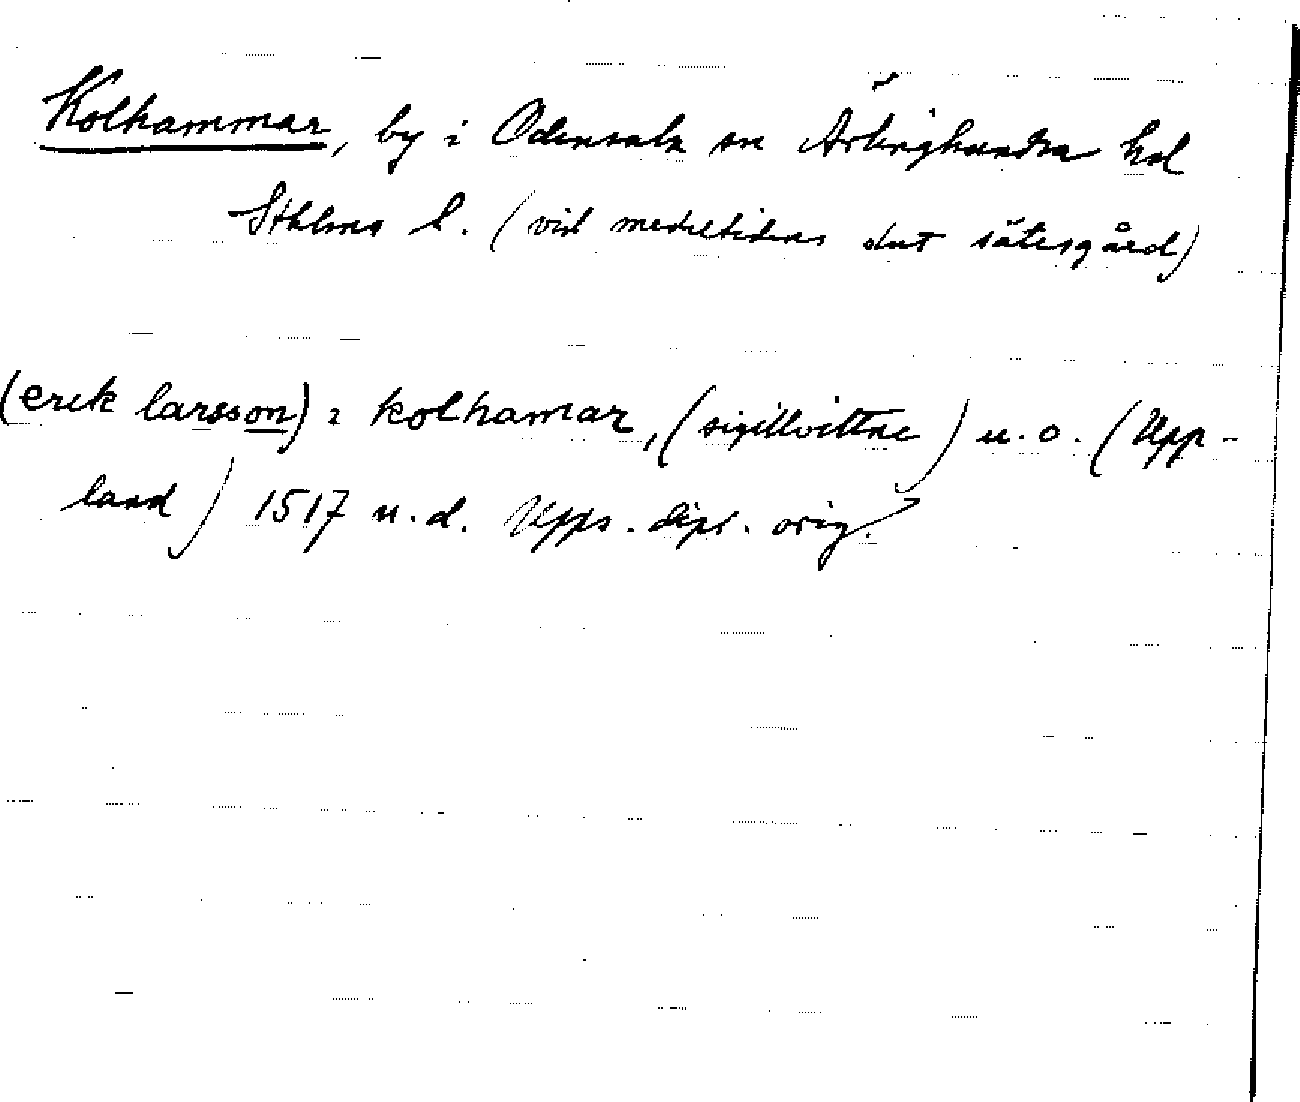 Kolhammar, by i Odensala sn Ärlinghundra hd
Sthlms l. (vid medeltidens slut sätesgård)
(erik larsson) i kolhamar, (sigillvittne) u.o. (Upp-
land) 1517 u.d. Upps. dipl. orig.